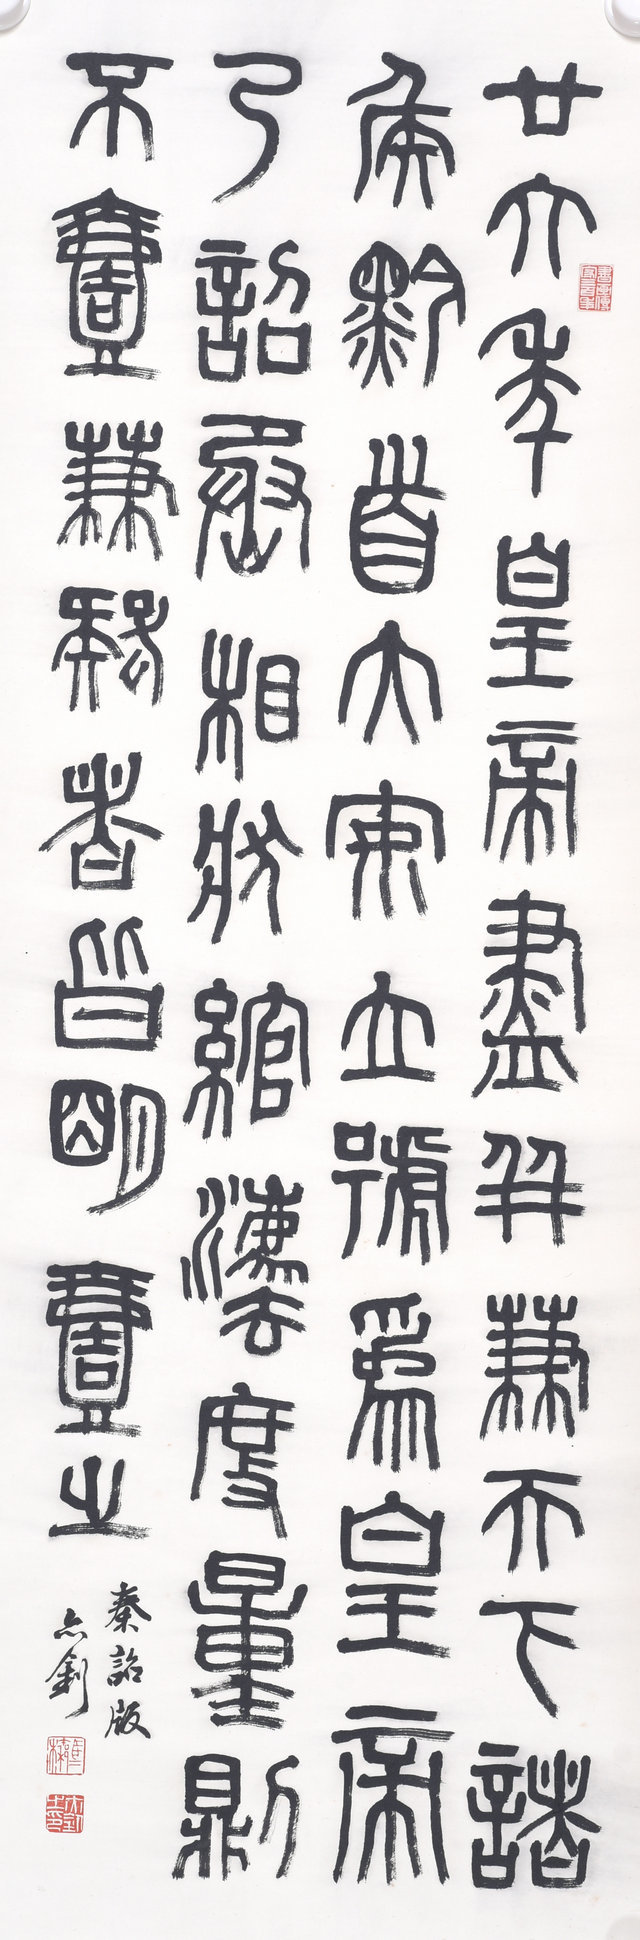 廿六年皇帝盡并兼天下諸
侯黔首大安立號為皇帝
乃詔丞相狀綰灋度量則
不壹兼疑者皆明壹之
秦詔版